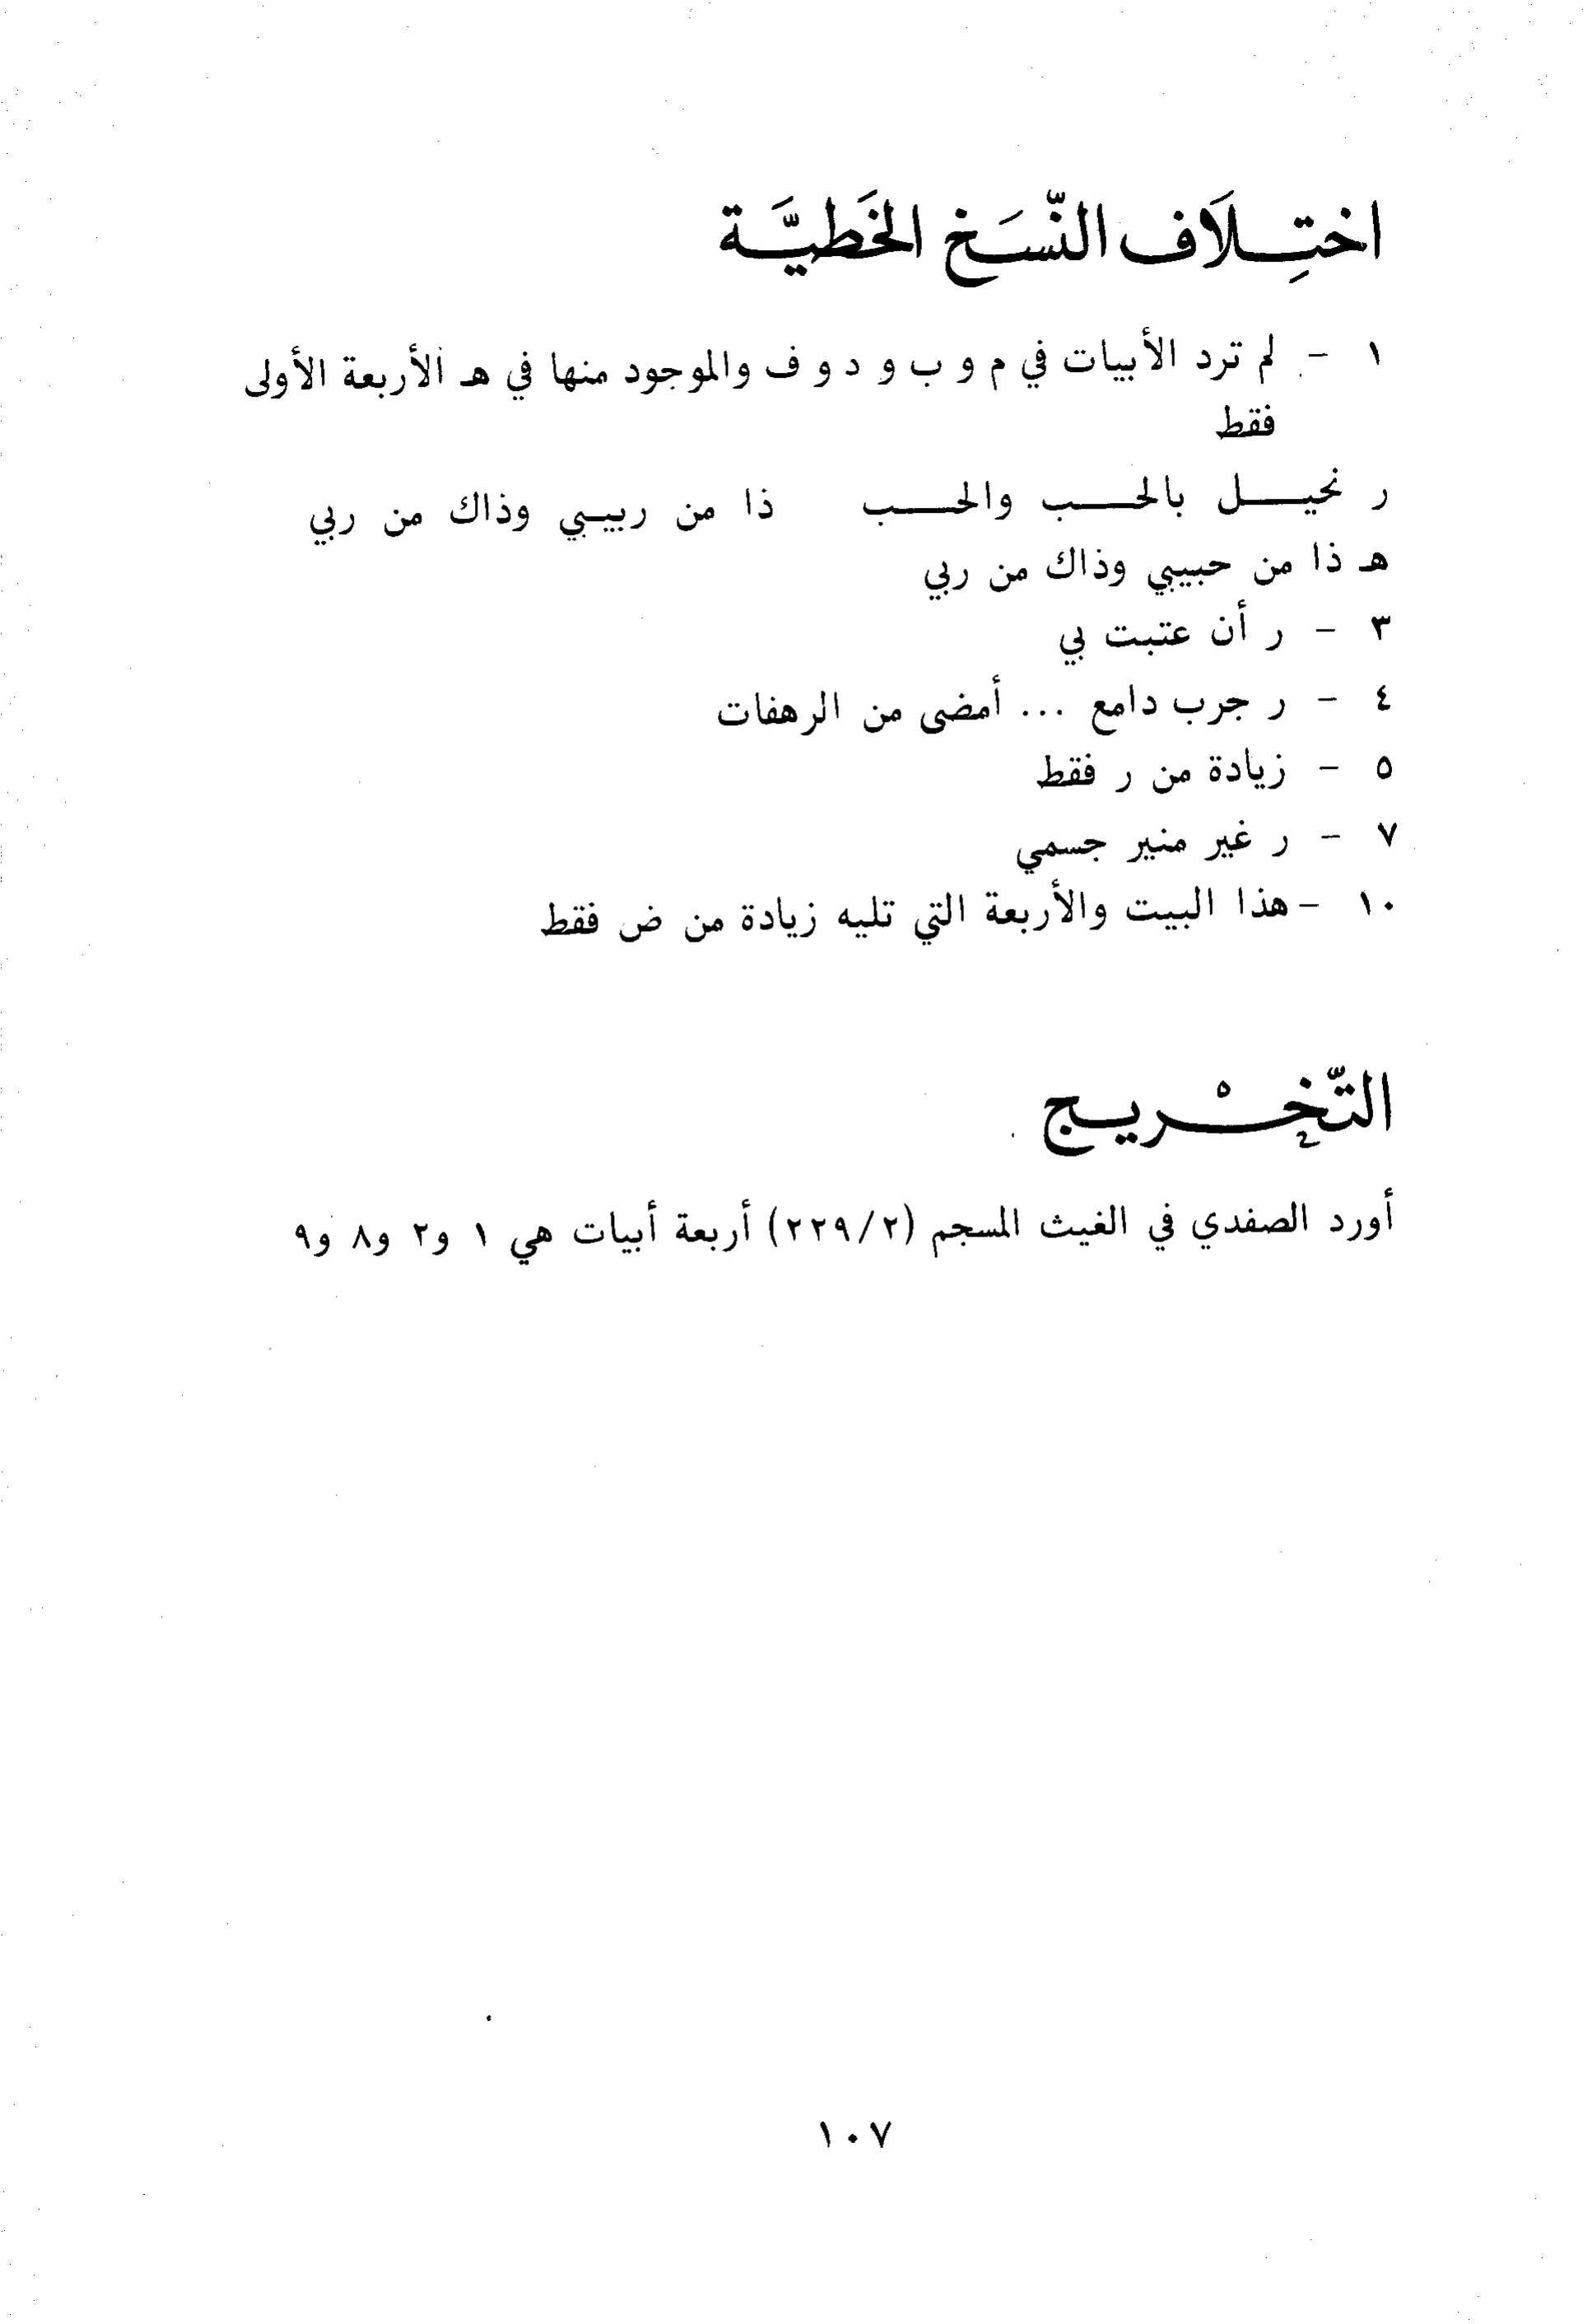 اختِـلَاف النّسَـخ الخَطيَّـة
١ - لم ترد الأبيات في م و ب و د و ف والموجود منها في هـ الأربعة الأولى
فقط
ر نحيـــل بالحـــب والحـــب ذا من ربيبي وذاك من ربي
هـ ذا من حبيبي وذاك من ربي
٣ - ر أن عتبت بي
٤ - ر جرب دامع ... أمضى من الرهفات
٥ - زيادة من ر فقط
٧ - ر غير منير جسمي
١٠ - هذا البيت والأربعة التي تليه زيادة من ض فقط
التّخْـريـج
أورد الصفدي في الغيث المسجم (٢/٢٢٩) أربعة أبيات هي ١ و٢ و٨ و٩
١٠٧